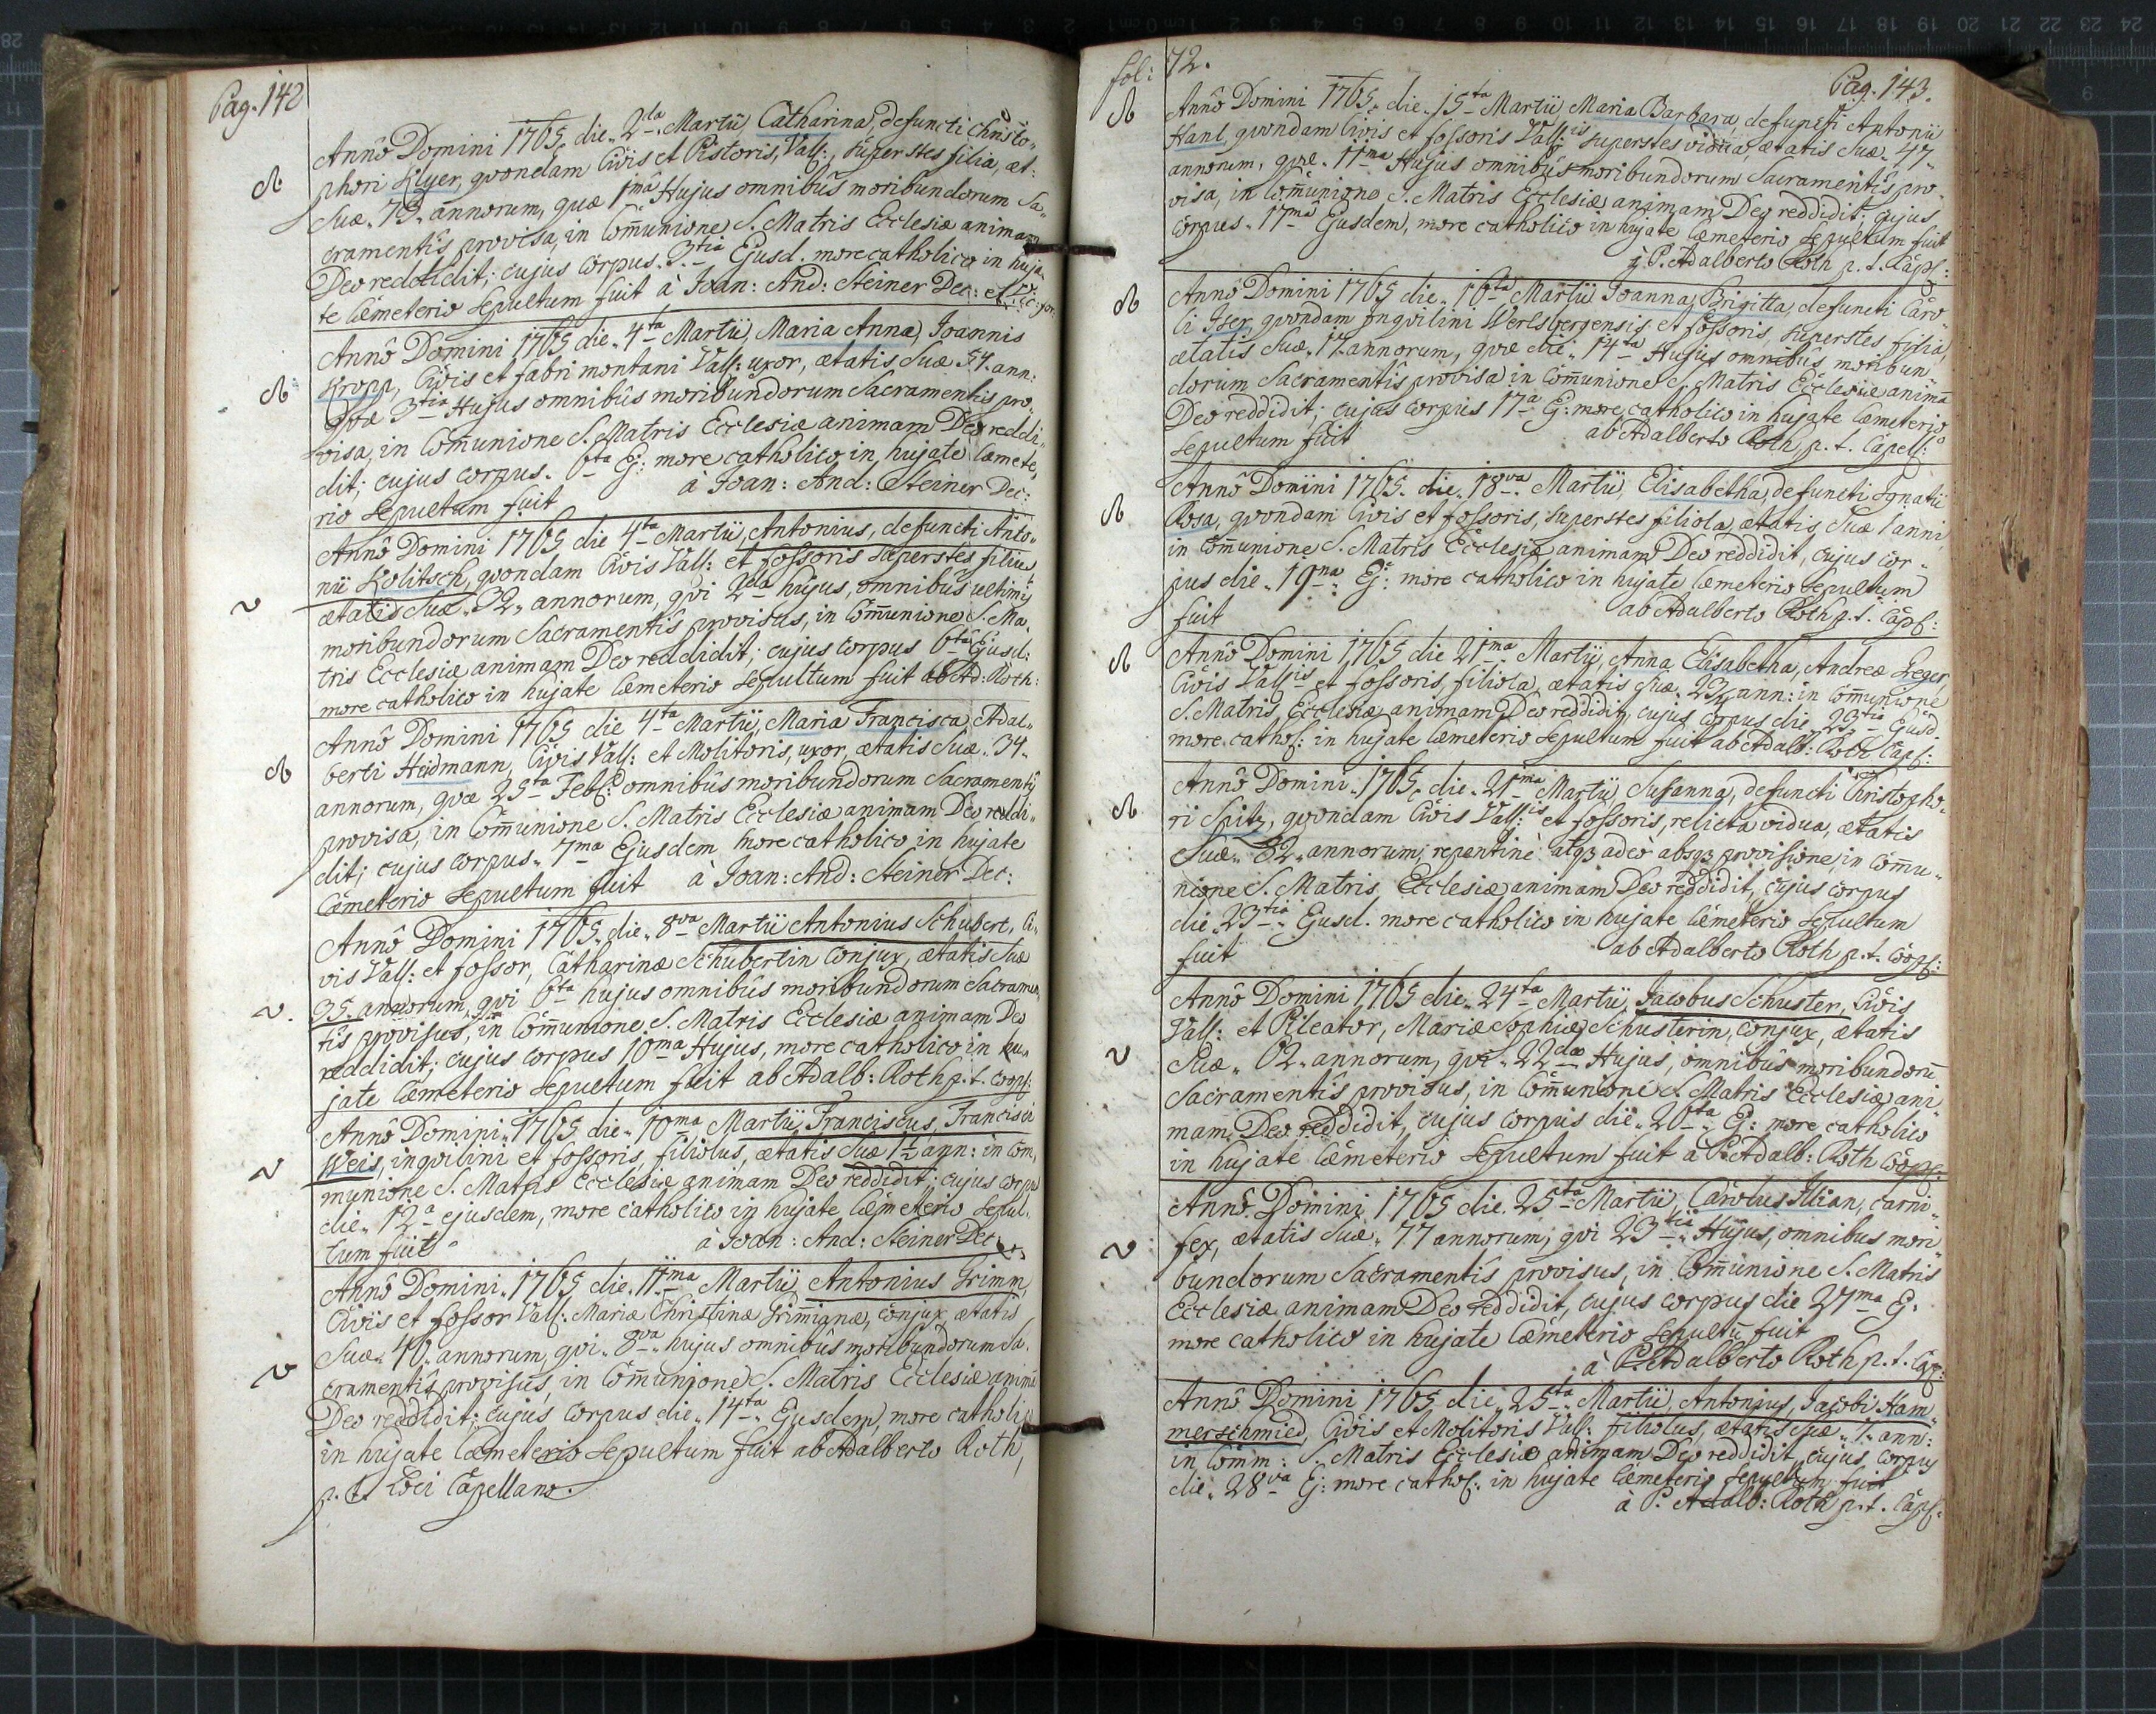 Pag. 142
Annô Domini 1765 die 2da Martii Catharina, defuncti Christo„
phori Klyer, qvondam Civis et Pistoris, Vall:, superstes filia, æt:
Suæ 73 annorum, quæ 1mâ Hujus omnibûs moribundorum Sa„
cramentîs provisa, in Com̄unione S. Matris Ecclesiæ animam
Deo reddidit; cujus Corpus 3tia Ejusd. more catholico in huja„
te Cœmeterio Sepultum fuit à Joan: And: Steiner Dec:
Annô Domini 1765 die 4ta Martii, Maria Anna, Joannis
Kropp, Civis et fabri montani Vall: uxor, ætatis Suæ 54. ann:
qvæ 3tia Hujus omnibûs moribundorum Sacramentis pro„
visa, in Com̄unione S. Matris Ecclesiæ animam Deo reddi„
dit; cujus corpus 6ta Ej: more catholico in hujate Cœmete„
rio Sepultum fuit à Joan: And: Steiner Dec:
Annô Domini 1765 die 4ta Martii, Antonius, defuncti Anto„
nii Kolitsch, qvondam Civis Vall: et fossoris superstes filius
ætatis Suæ 32 annorum, qvi 2da hujus, omnibûs ultimis
moribundorum Sacramentîs provisus, in Com̄unione S. Ma„
tris Ecclesiæ animam Deo reddidit; cujus corpus 6ta Ejusd:
more catholico in hujate Cœmeterio Sepultum fuit ab Ad: Roth:
Annô Domini 1765 die 4ta Martii, Maria Francisca, Adal„
berti Heidmann, Civis Vall: et Molitoris, uxor, ætatis Suæ 34
annorum, qvæ 25ta Feb: omnibûs moribundorum Sacramentîs
provisa, in Com̄unione S. Matris Ecclesiæ animam Deo reddi„
dit; cujus corpus 7ma Ejusdem more catholico in hujate
Cœmeterio Sepultum fuit à Joan: And: Steiner Dec:
Annô Domini 1765 die 8va Martii Antonius Schubert, Ci„
vis Vall: et fossor, Catharinæ Schubertin Conjux, ætatis Suæ
35. annorum, qvi 6ta hujus omnibûs moribundorum Sacramen„
tîs provisus, in Com̄unione S. Matris Ecclesiæ animam Deo
reddidit; cujus corpus 10ma Hujus, more catholico in hu„
jate Cœmeterio Sepultum fuit ab Adalb: Roth p. t. Coop:
Annô Domini 1765 die 10ma Martii, Franciscus, Francisci
Weis, inqvilini et fossoris, filiolus, ætatis Suæ 1½ ann: in Com„
munione S. Matris Ecclesiæ animam Deo reddidit; cujus corpus
die 12a ejusdem, more catholico in hujate Cœmeterio Sepul„
tum fuit à Joan: And: Steiner Dec:
Annô Domini 1765 die 11ma Martii Antonius Grimm,
Civis et fossor Vall: Mariæ Christinæ Grimmianæ, Conjux, ætatis
Suæ 40 annorum, qvi 8va hujus omnibûs moribundorum Sa„
cramentîs provisus, in Com̄unione S. Matris Ecclesiæ animā
Deo reddidit; cujus Corpus die 14ta Ejusdem, more catholico
in hujate Cœmeterio Sepultum fuit ab Adalberto Roth,
p. t. Loci Capellano.
fol: 72.
Pag. 143.
Annô Domini 1765 die 15ta Martii Maria Barbara, defuncti Antonii
Hanl, qvondam Civis et fossoris Vall:is superstes vidua, ætatis Suæ 47
annorum, qvæ 11ma Hujus omnibûs moribundorum Sacramentîs pro„
visa, in Com̄unione S. Matris Ecclesiæ animam Deo reddidit; cujus
Corpus 17ma Ejusdem, more catholico in hujate Cœmeterio Sepultum fuit
à P. Adalberto Roth p. t. Capl:
Annô Domini 1765 die 16ta Martii Joanna Brigitta, defuncti Caro„
li Iser, qvondam Inqvilini Werlsbergensis et fossoris, superstes filia,
ætatis Suæ annorum, qvæ die 14ta Hujus omnibûs moribun„
dorum Sacramentîs provisa in Com̄unione S. Matris Ecclesiæ animā
Deo reddidit; cujus corpus 17a Ej: more catholico in hujate Cœmeterio
sepultum fuit ab Adalberto Roth, p. t. Capell:o
Annô Domini 1765 die 18va Martii, Elisabetha, defuncti Ignatii
Rosa, qvondam Civis et fossoris, superstes filiola, ætatis Suæ 1 anni,
in Com̄unione S. Matris Ecclesiæ animam Deo reddidit, cujus cor„
pus die 19na Ej: more catholico in hujate Cœmeterio Sepultum
fuit ab Adalberto Roth p. t. Capl:
Annô Domini 1765 die 21ma Martii, Anna Elisabetha, Andreæ Leger
Civis Vallis et fossoris, filiola, ætatis Suæ ann: in Com̄unione
S. Matris Ecclesiæ animam Deo reddidit, cujus Corpus die 23tia Ejusd.
more cathol: in hujate Cœmeterio sepultum fuit ab Adalb: Roth Capl:
Annô Domini 1765 die 21ma Martii Susanna, defuncti Christopho„
ri Spitz, qvondam Civis Vall:is et fossoris, relicta vidua, ætatis
Suæ 82 annorum, repentinè atqꝫ adeò absqꝫ provisione, in Com̄u„
nione S. Matris Ecclesiæ animam Deo reddidit, cujus corpus
die 23tia Ejusd. more catholico in hujate Cœmeterio Sepultum
fuit ab Adalberto Roth p. t. Coop:
Annô Domini 1765 die 24ta Martii, Jacobus Schuster, Civis
Vall: et Pileator, Mariæ Sophiæ Schusterin, conjux, ætatis
Suæ 62 annorum, qvi 22da Hujus, omnibûs moribundorū
Sacramentîs provisus, in Com̄unione S. Matris Ecclesiæ ani„
mam Deo reddidit, cujus corpus die 26ta Ej: more catholico
in hujate Cœmeterio Sepultum fuit à P. Adalb: Roth Coop:
Annô Domini 1765 die 25ta Martii, Carolus Ilian, Carni„
fex, ætatis Suæ 77 annorum, qvi 23tia Hujus, omnibus mori„
bundorum Sacramentîs provisus, in Com̄unione S. Matris
Ecclesiæ animam Deo reddidit, cujus corpus die 27ma Ej:
more catholico in hujate Cœmeterio sepultū fuit
à P. Adalberto Roth p. t. Cap:
Annô Domini 1765 die 25ta Martii, Antonius, Jacobi Ham„
merschmied, Civis et Molitoris Vall: filiolus, ætatis Suæ 1. ann:
in Comm: S. Matris Ecclesiæ animam Deo reddidit, cujus corpus
die 28va Ej: more cathol: in hujate Cœmeterio Sepultum fuit
à P. Adalb: Roth p. t. Capl: